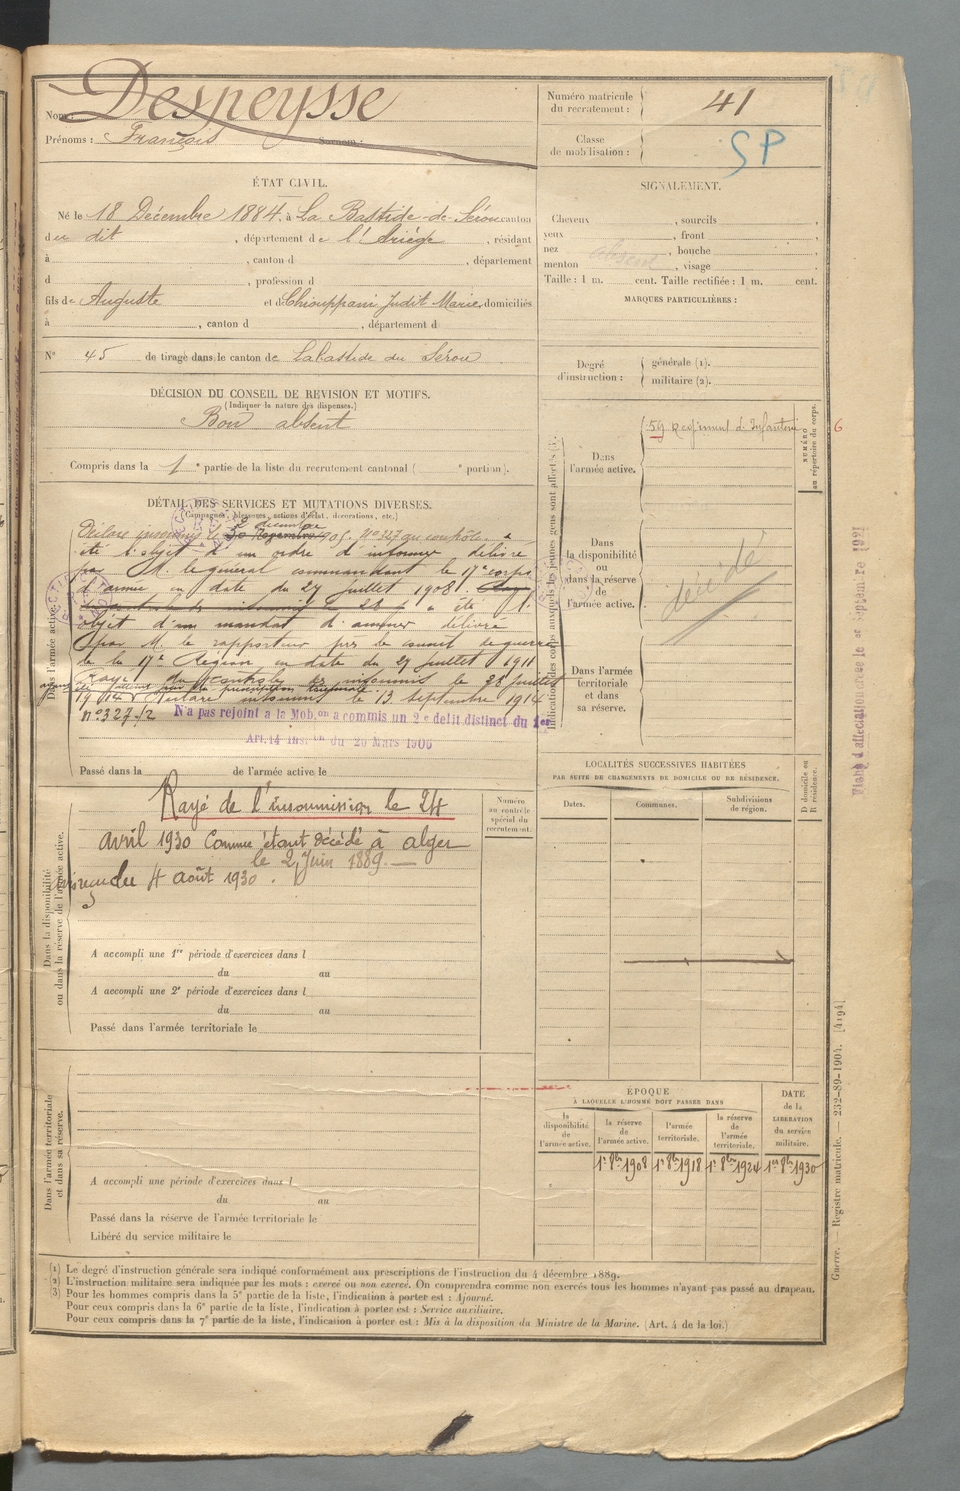 Nom : Despeysse
Prénoms : François Surnom :
Numéro matricule du recrutement : 41
Classe de mobilisation :
SP
ÉTAT CIVIL.
Né le 18 Décembre 1884, à La Bastide-de-Sérou canton
du dit, département de l'Ariège, résidant
à , canton d , département
d , profession d
fils de Auguste et de Chiouppani Judit Marie, domiciliés
à , canton d , département d
N° 45 de tirage dans le canton de Labastide du Sérou
DÉCISION DU CONSEIL DE REVISION ET MOTIFS.
(Indiquer la nature des dispenses.)
Bon absent
Compris dans la 1e partie de la liste du recrutement cantonal ( e portion).
SIGNALEMENT.
Cheveux , sourcils ,
yeux , front ,
nez , bouche ,
menton , visage .
absent
Taille : 1 m. cent. Taille rectifiée : 1 m. cent.
MARQUES PARTICULIÈRES :
Degré d'instruction : générale (1).
militaire (2).
Indication des corps auxquels les jeunes gens sont affectés (3).
Dans l'armée active.
59 Régiment d'Infanterie
NUMÉRO au répertoire du corps.
6
Dans la disponibilité ou dans la réserve de l'armée active.
décédé
Dans l'armée territoriale et dans sa réserve.
DÉTAIL DES SERVICES ET MUTATIONS DIVERSES.
(Campagnes, blessures, actions d'éclat, décorations, etc.)
Dans l'armée active.
2 décembre
Déclaré insoumis le 30 Novembre 1905. N° 327 au contrôle. a
été l'objet d'un ordre d'informer délivré
par M. le général commandant le 17e corps
d'armée en date du 27 juillet 1908.
a été l'
objet d'un mandat d'amener délivré
par M. le rapporteur près le conseil de guerre
de la 17e Région en date du 27 juillet 1911
Rayé du contrôle des insoumis le 28 juillet
1914 Déclaré insoumis le 13 septembre 1914
n° 327/2 N'a pas rejoint a la Mob.on a commis un 2e délit distinct du 1er
Art. 14 Ins.on du 20 Mars 1906
Passé dans la de l'armée active le
Dans la disponibilité ou dans la réserve de l'armée active.
Rayé de l'insoumission le 24
avril 1930 comme étant décédé à alger
le 2 juin 1889.
du 4 août 1930.
Numéro au contrôle spécial du recrutement.
A accompli une 1re période d'exercices dans l
du au
A accompli une 2e période d'exercices dans l
du au
Passé dans l'armée territoriale le
LOCALITÉS SUCCESSIVES HABITÉES
PAR SUITE DE CHANGEMENTS DE DOMICILE OU DE RÉSIDENCE.
D domicile ou R résidence.
Dates. Communes. Subdivisions de région.
Dans l'armée territoriale et dans sa réserve.
A accompli une période d'exercices dans l
du au
Passé dans la réserve de l'armée territoriale le
Libéré du service militaire le
ÉPOQUE
À LAQUELLE L'HOMME DOIT PASSER DANS
la disponibilité de l'armée active.
la réserve de l'armée active.
l'armée territoriale.
la réserve de l'armée territoriale.
DATE de la LIBÉRATION du service militaire.
1er 8bre 1908 1er 8bre 1918 1er 8bre 1924 1er 8bre 1930
(1) Le degré d'instruction générale sera indiqué conformément aux prescriptions de l'instruction du 4 décembre 1889.
(2) L'instruction militaire sera indiquée par les mots : exercé ou non exercé. On comprendra comme non exercés tous les hommes n'ayant pas passé au drapeau.
(3) Pour les hommes compris dans la 5e partie de la liste, l'indication à porter est : Ajourné.
Pour ceux compris dans la 6e partie de la liste, l'indication à porter est : Service auxiliaire.
Pour ceux compris dans la 7e partie de la liste, l'indication à porter est : Mis à la disposition du Ministre de la Marine. (Art. 4 de la loi.)
Guerre. — Registre matricule. — 232-89-1904. [4194]
Fiche d'affectation créée le 1er Septembre 1921